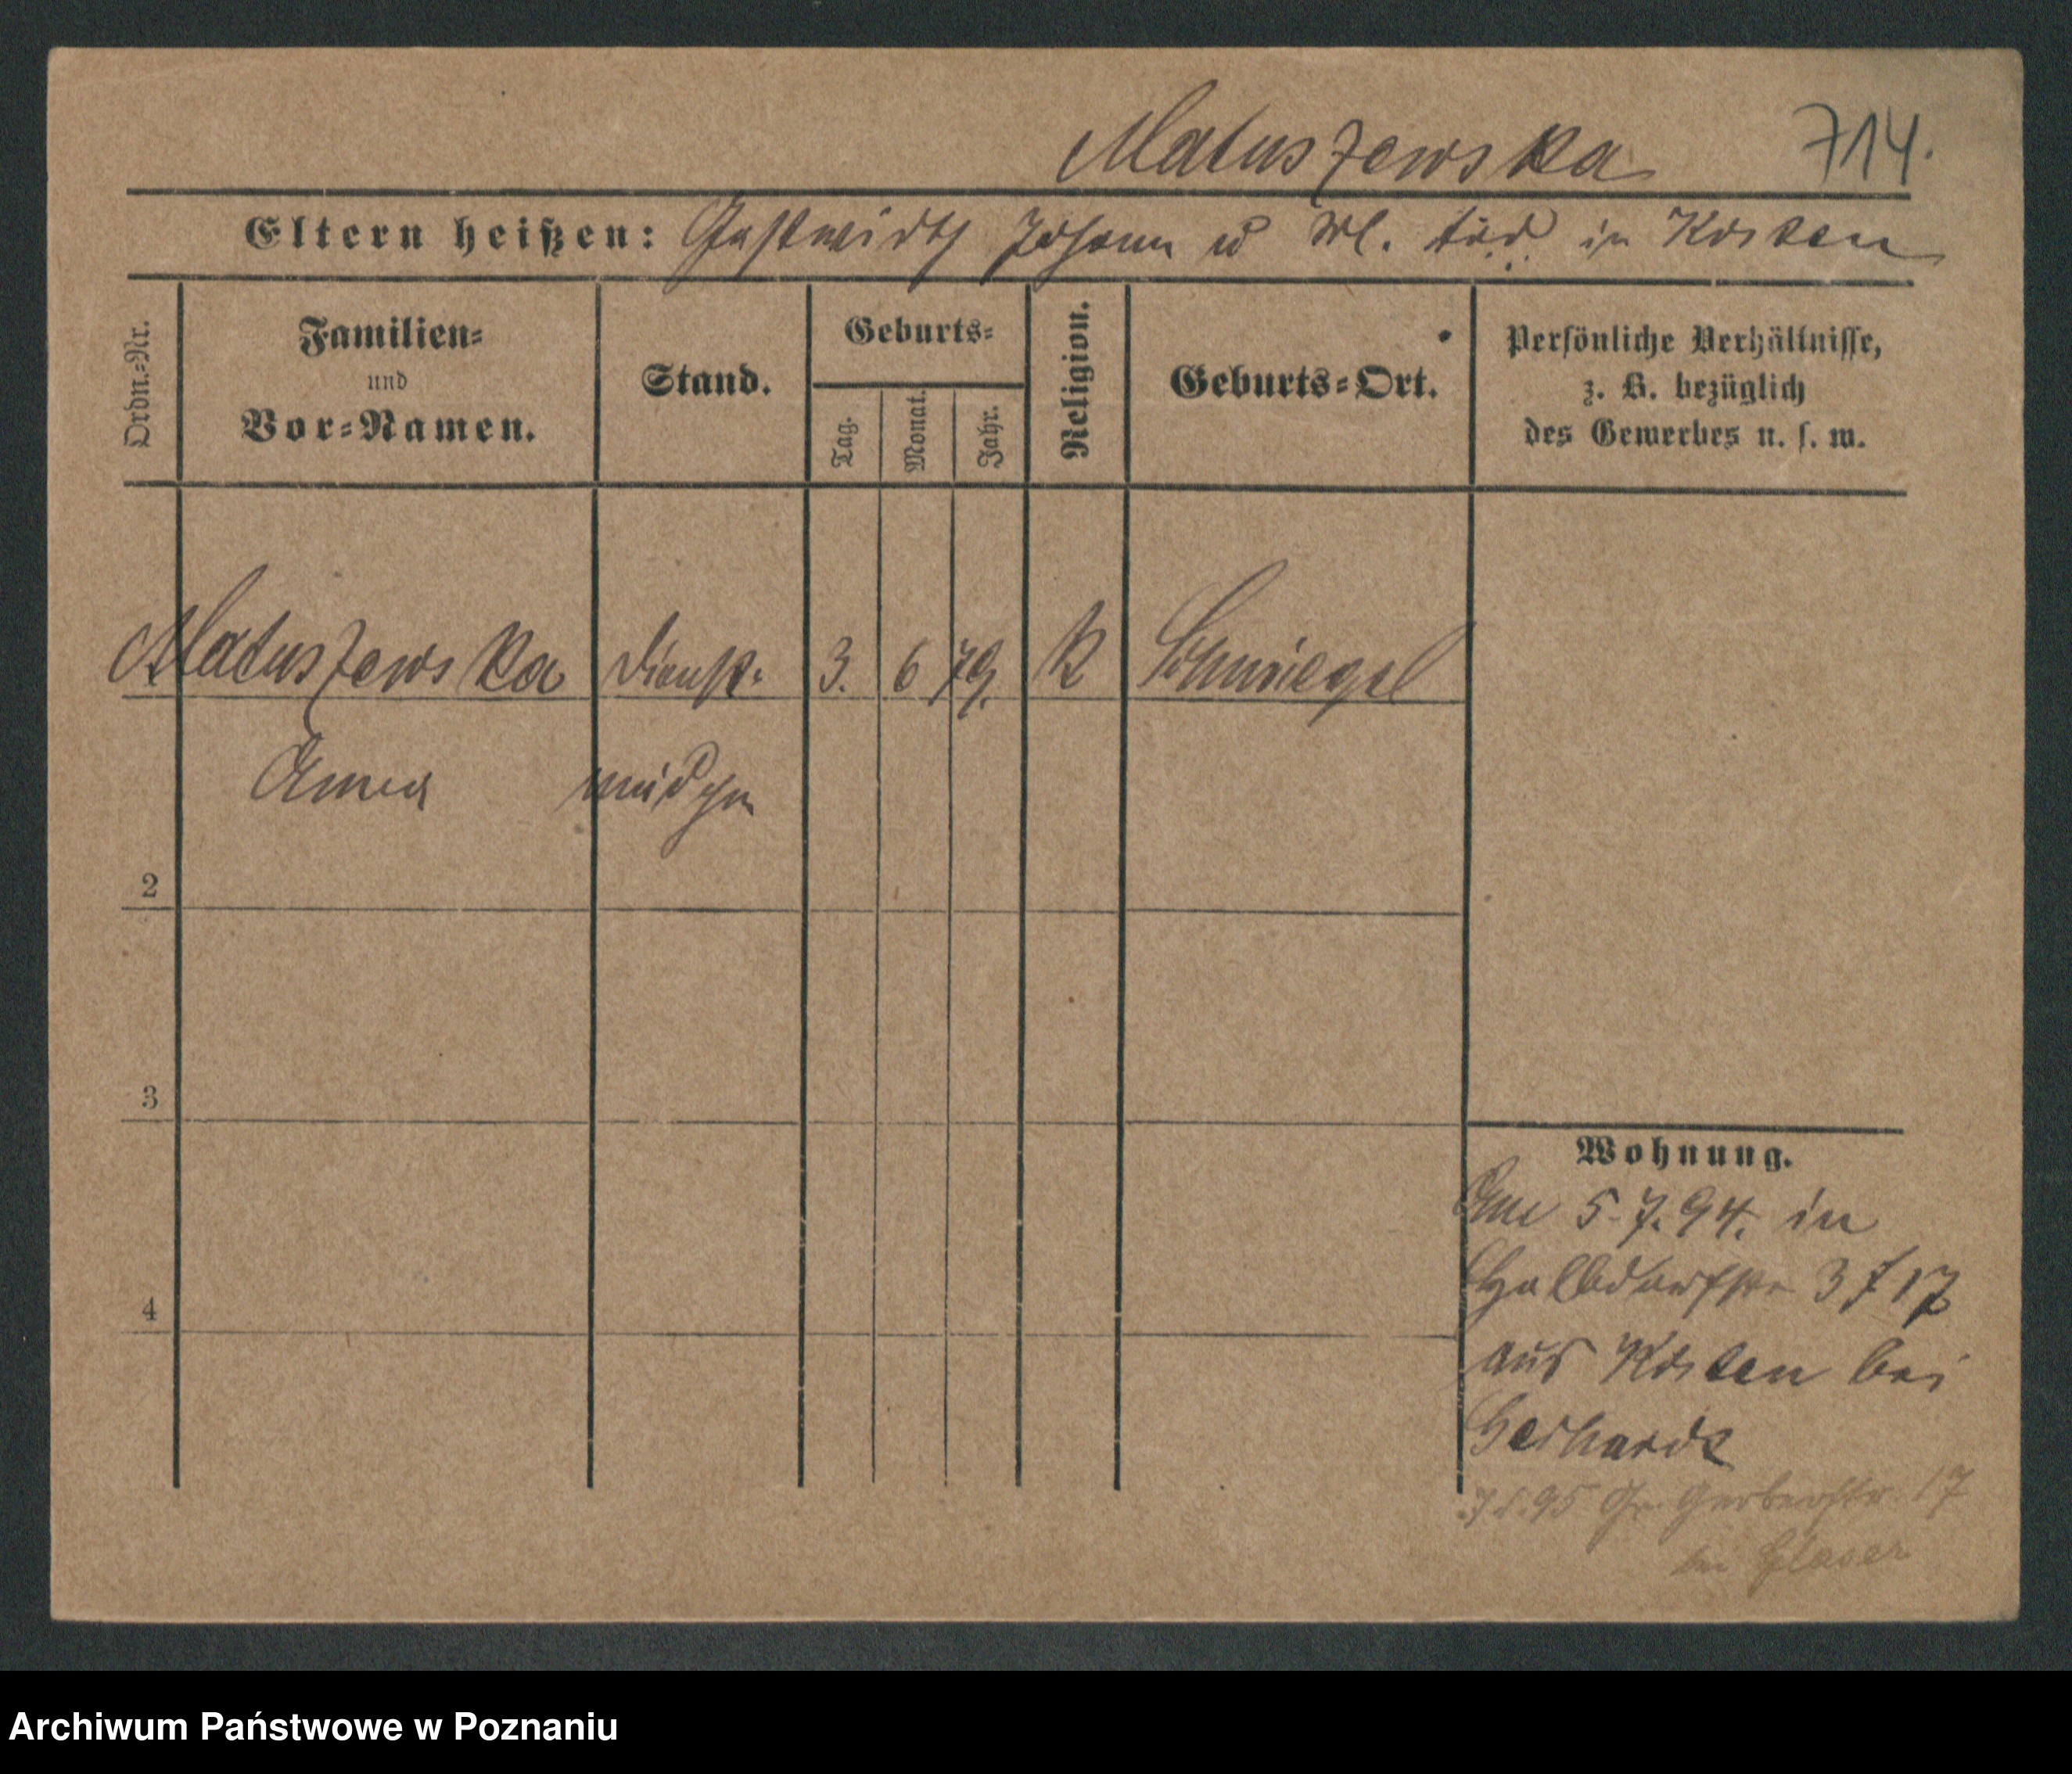 Matuszewska 714.
Eltern heißen: Gastwirth Johann u in Kosten
Ordn.-Nr.
Familien-
und
Vor-Namen.
Stand.
Geburts-
Tag.
Monat.
Jahr.
Religion.
Geburts-Ort.
Persönliche Verhältnisse,
z. B. bezüglich
des Gewerbes u. s. w.
Matuszewska Dienst- 3. 6 79. K Schmiegel
Anna mädchen
2
3
4
Wohnung.
Am 5.7.94. in
Halbdorfstr 3
aus Kosten bei
Gerhardt
95 Gr. Gerberstr. 17
bei Glaser
Archiwum Państwowe w Poznaniu